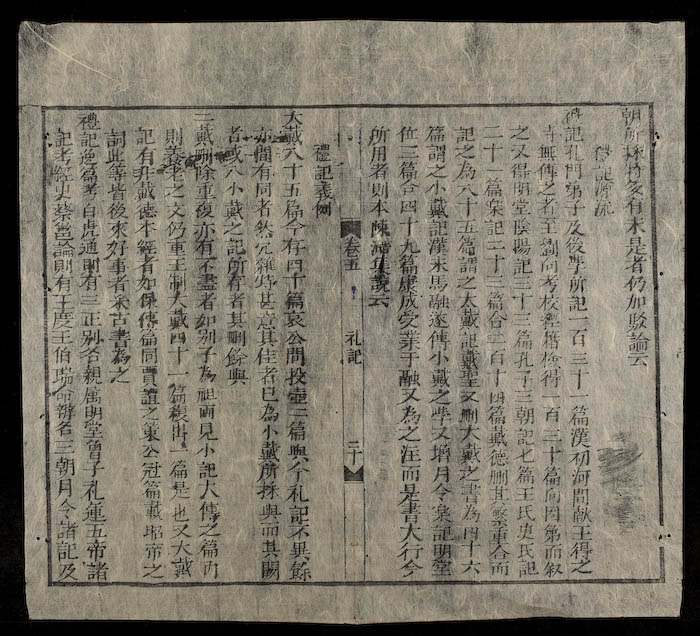 朝所採衆有未是者仍加駁論云
禮記源流
禮記孔門弟子及後學所記一百三十一篇漢初河間獻王得之
無傳之者至劉向考校經籍檢得一百三十篇向因第而叙
之又得明堂陰陽記三十三篇孔子三朝記七篇王氏史氏記
二十一篇樂記二十三篇合二百十四篇戴德刪其繁重合而
記之為八十五篇謂之大戴記戴聖又刪大戴之書為四十六
篇謂之小戴記漢末馬融遂傳小戴之學又增月令樂記明堂
位三篇合四十九篇康成受業于融又為之注而是書大行今
所用者則本陳澔集說云
卷五
礼記
二十
禮記義例
大戴八十五篇今存四十篇哀公問投壺二篇與今礼記不異餘
亦間有同者然冗雜特甚意其佳者已為小戴所採與而其闕
者或八小戴之記所存者其刪餘與
二戴刪除重複亦有不盡者如別子為祖両見小記大傳之篇內
則養老之文仍重王制大戴四十一篇複出一篇是也又大戴
記有非戴德本經者如保傅篇同賈誼之策公冠篇載昭帝之
詞此等皆後來好事者采古書為之
禮記逸篇考白虎通則有三正別名親属明堂曾子礼運五帝諸
記考經史蔡邕論則有王度王伯瑞命辨名三朝月令諸記及